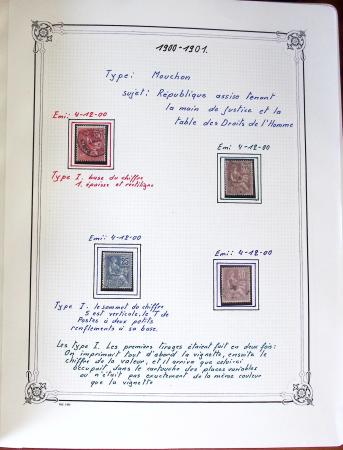 1900-1901.
Type: Mouchon
sujet: République assise tenant
la main de justice et la
table des Droits de l'Homme
Emi: 4-12-00
Emi: 4-12-00
Type I. base du chiffre
1. épaisse et rectiligne
Emi: 4-12-00
Emi: 4-12-00
Type I. le sommet du chiffre
5 est verticale, le T de
Postes à deux petits
renflements à sa base.
Les type I. Les premiers tirages étaient fait en deux fois:
On imprimait tout d'abord la vignette, ensuite le
chiffre de la valeur, et il arrive que celui-ci
occupait dans le cartouche des places variables
ou n'était pas exactement de la même couleur
que la vignette